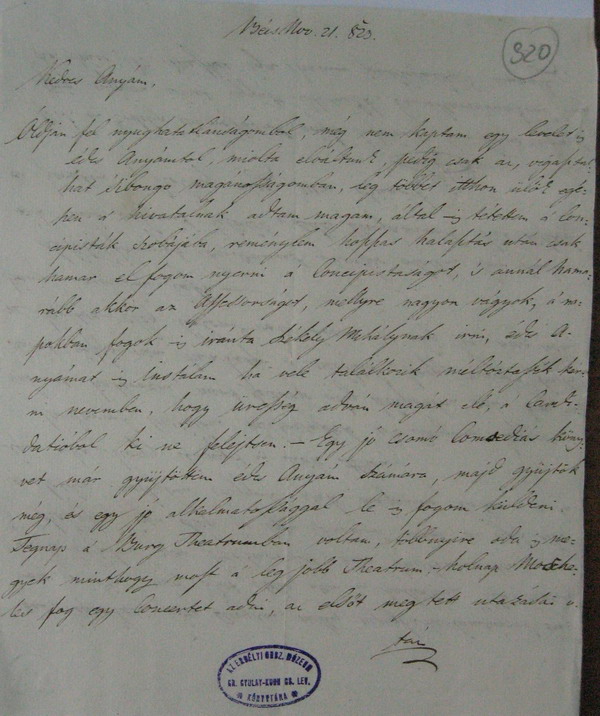 Bécs Nov. 21. 823.
320
Kedves Anyám,
Óldjan fel nyughatatlanságomból, még nem kaptam egy levelet is
édes Anyámtol, miolta elváltunk, pedig csak az,
hat magánosságomban, leg többet itthon ülök egé-
szen a hivatalnak adtam magam, által is tétettem á Con-
cipisták Szobájába, reménylem hoppas halaptás után csak
hamar el fogom nyerni á Concipistaságot, is annál hama-
rabb akkor az Assessorságot, mellyre nagyon vágyok, á na-
pokban fogok is iránta Székely Mihálynak irni, édes A-
nyámat is instálom há vele találkozik méltóztassék kér-
ni nevemben, hogy üresség adván magát elé, á Candi-
datióbol ki ne felejtsen. – Egy jó csomó Comoediás köny-
vet már gyüjtöttem édes Anyám számára, majd gyüjtök
még, es egy jó alkalmatossággal le is fogom küldeni.
Tegnap á Burg Theatrumban voltam, többnyire oda is me-
gyek minthogy most á leg jobb Theatrum. Holnap Mosche-
les fog egy Concertet adni, az elsőt meg tett utazása u-
tán
AZ ERDÉLYI ORSZ. MÚZEUM
GR. GYULAY-KUUN GR. LEV.
KÖNYVTÁRA